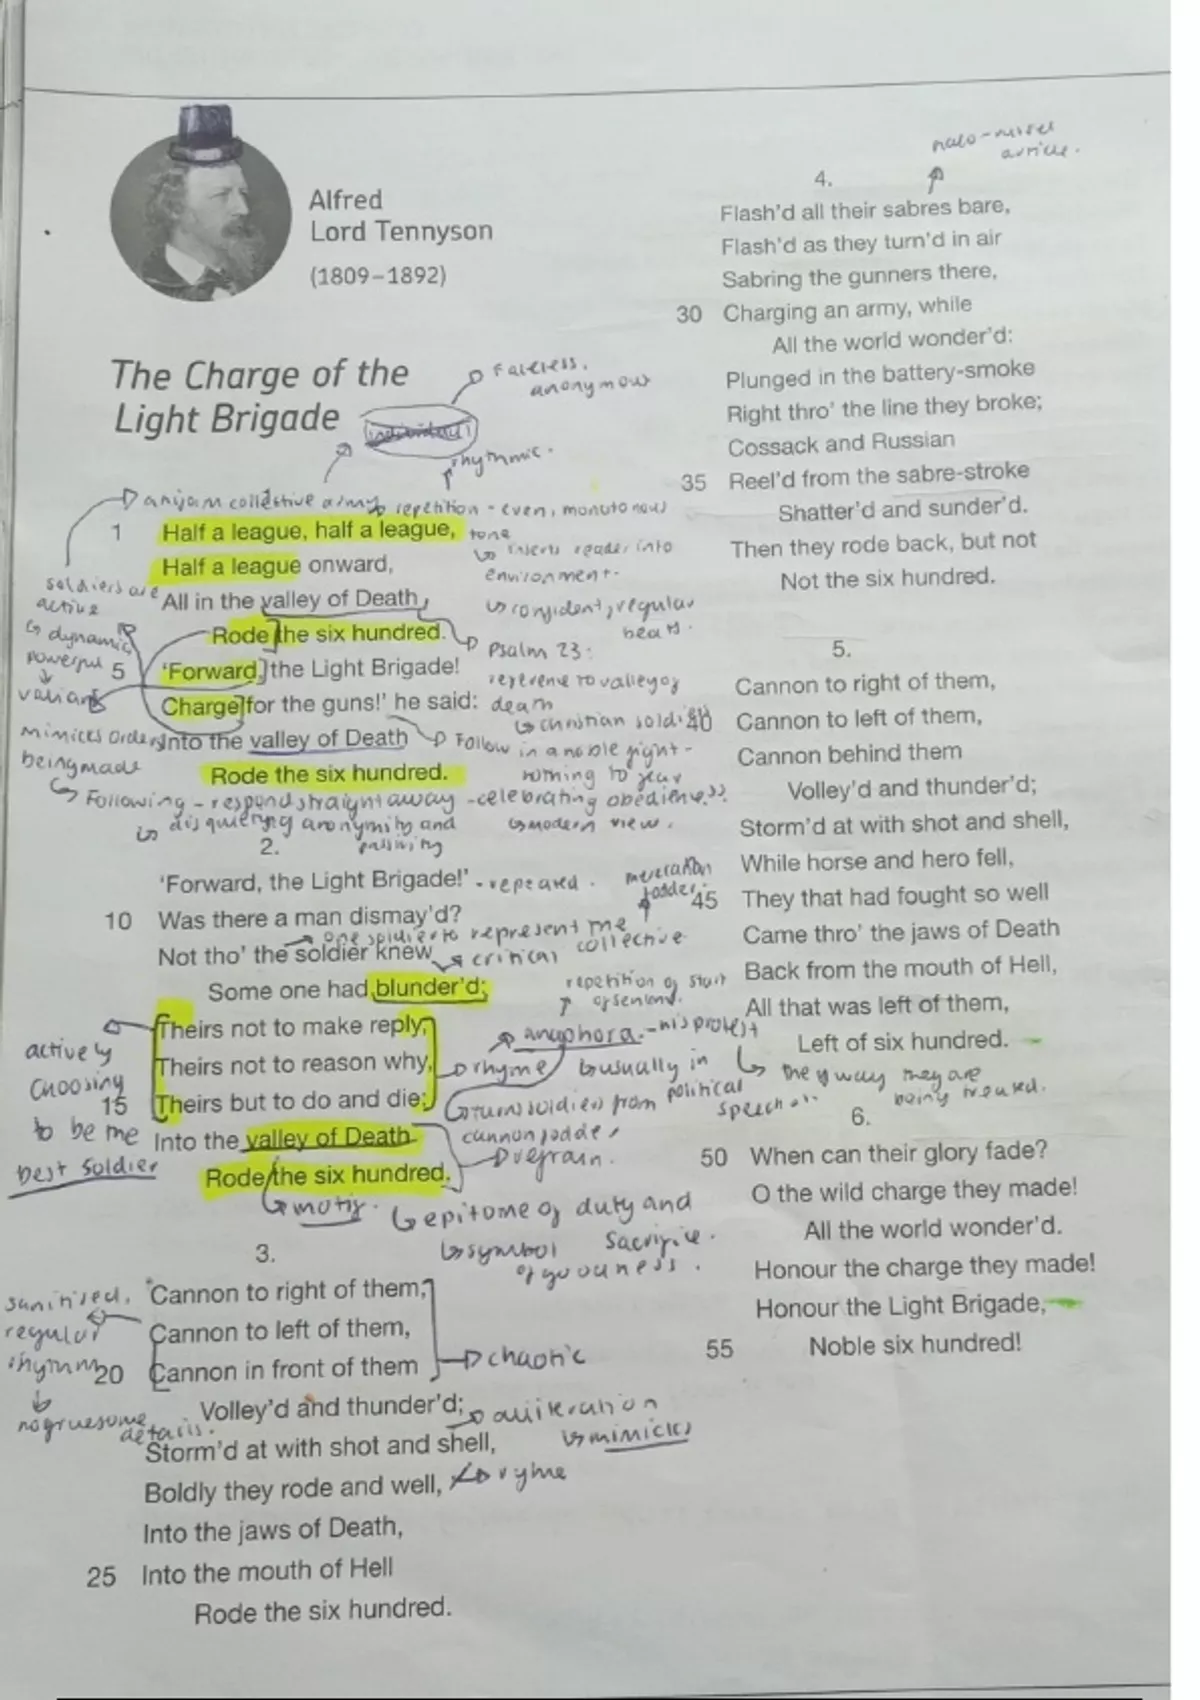 Alfred
Lord Tennyson
(1809–1892)
The Charge of the
Light Brigade
faceless,
anonymous
rhythmic.
collective army
repetition - even, monotonous
tone
1 Half a league, half a league,
inserts reader into
environment.
Half a league onward,
soldiers are
active
All in the valley of Death,
confident, regular
beats.
dynamic,
powerful
valiant
Rode the six hundred.
Psalm 23:
reference to valley of
death
5 'Forward, the Light Brigade!
Charge for the guns!' he said:
christian soldiers
mimicks orders
being made
Into the valley of Death
Follow in a noble fight -
nothing to fear
Rode the six hundred.
Following - respond straight away - celebrating obedience
disquieting anonymity and
passivity
modern view.
2.
'Forward, the Light Brigade!'
- repeated.
10 Was there a man dismay'd?
one soldier to represent the
collective
Not tho' the soldier knew
critical
Some one had blunder'd:
repetition of start
of sentence.
Theirs not to make reply,
anaphora. - his protest
actively
choosing
to be the
best soldier
Theirs not to reason why,
rhyme
usually in
political
speech
the way they are
being treated.
15 Theirs but to do and die:
turns soldiers from
cannon fodder
Into the valley of Death
refrain.
Rode the six hundred.
motif.
epitome of duty and
sacrifice.
symbol
of goodness.
3.
Cannon to right of them,
sanitised,
regular
rhythm
no gruesome
details.
Cannon to left of them,
20 Cannon in front of them
chaotic
Volley'd and thunder'd;
alliteration
mimicks
Storm'd at with shot and shell,
Boldly they rode and well,
ryhme
Into the jaws of Death,
25 Into the mouth of Hell
Rode the six hundred.
4.
article.
Flash'd all their sabres bare,
Flash'd as they turn'd in air
Sabring the gunners there,
30 Charging an army, while
All the world wonder'd:
Plunged in the battery-smoke
Right thro' the line they broke;
Cossack and Russian
35 Reel'd from the sabre-stroke
Shatter'd and sunder'd.
Then they rode back, but not
Not the six hundred.
5.
Cannon to right of them,
40 Cannon to left of them,
Cannon behind them
Volley'd and thunder'd;
Storm'd at with shot and shell,
While horse and hero fell,
45 They that had fought so well
Came thro' the jaws of Death
Back from the mouth of Hell,
All that was left of them,
Left of six hundred.
6.
50 When can their glory fade?
O the wild charge they made!
All the world wonder'd.
Honour the charge they made!
Honour the Light Brigade,
55 Noble six hundred!